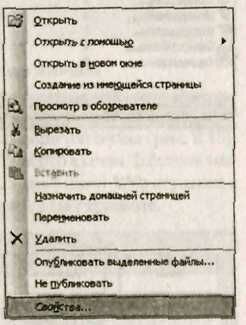 Открыть
Открыть с помощью
Открыть в новом окне
Создание из имеющейся страницы
Просмотр в обозревателе
Вырезать
Копировать
Вставить
Назначить домашней страницей
Переименовать
Удалить
Опубликовать выделенные файлы...
Не публиковать
Свойства...